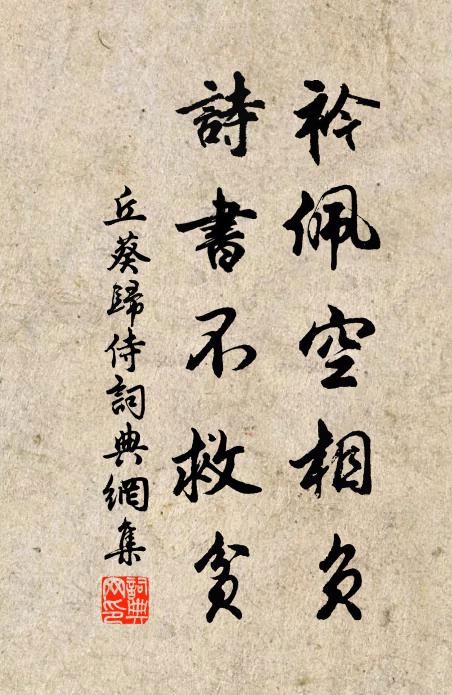 衿佩空相負
詩書不救貧
丘葵歸侍詞典網集
詞典網印